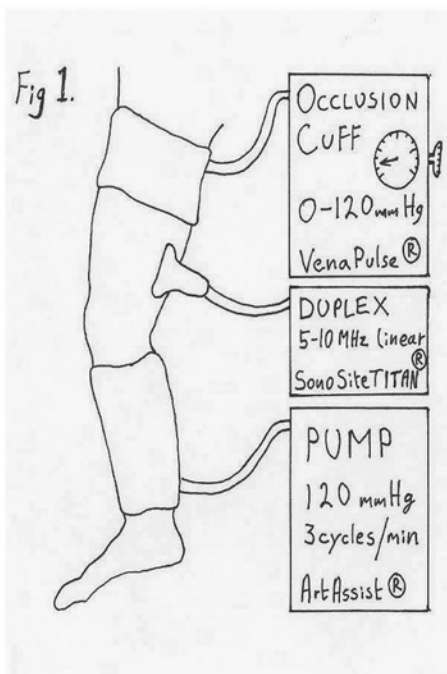 Fig 1.
OCCLUSION
CUFF
0-120mmHg
VenaPulse®
DUPLEX
5-10 MHz linear
SonoSiteTITAN®
PUMP
120 mmHg
3cycles/min
ArtAssist®